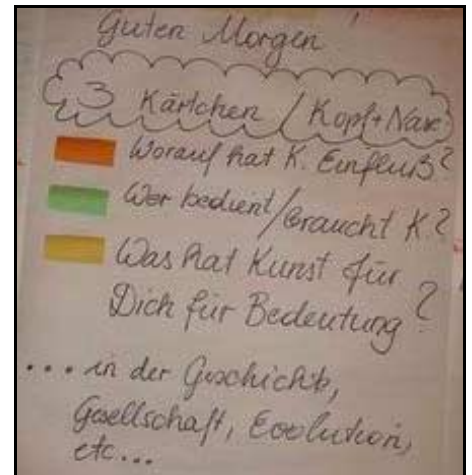 Guten Morgen!
3 Kärtchen / Kopf + Nase
Worauf hat K. Einfluß?
Wer bedient/braucht K.?
Was hat Kunst für
Dich für Bedeutung?
... in der Geschichte,
Gesellschaft, Evolution,
etc...